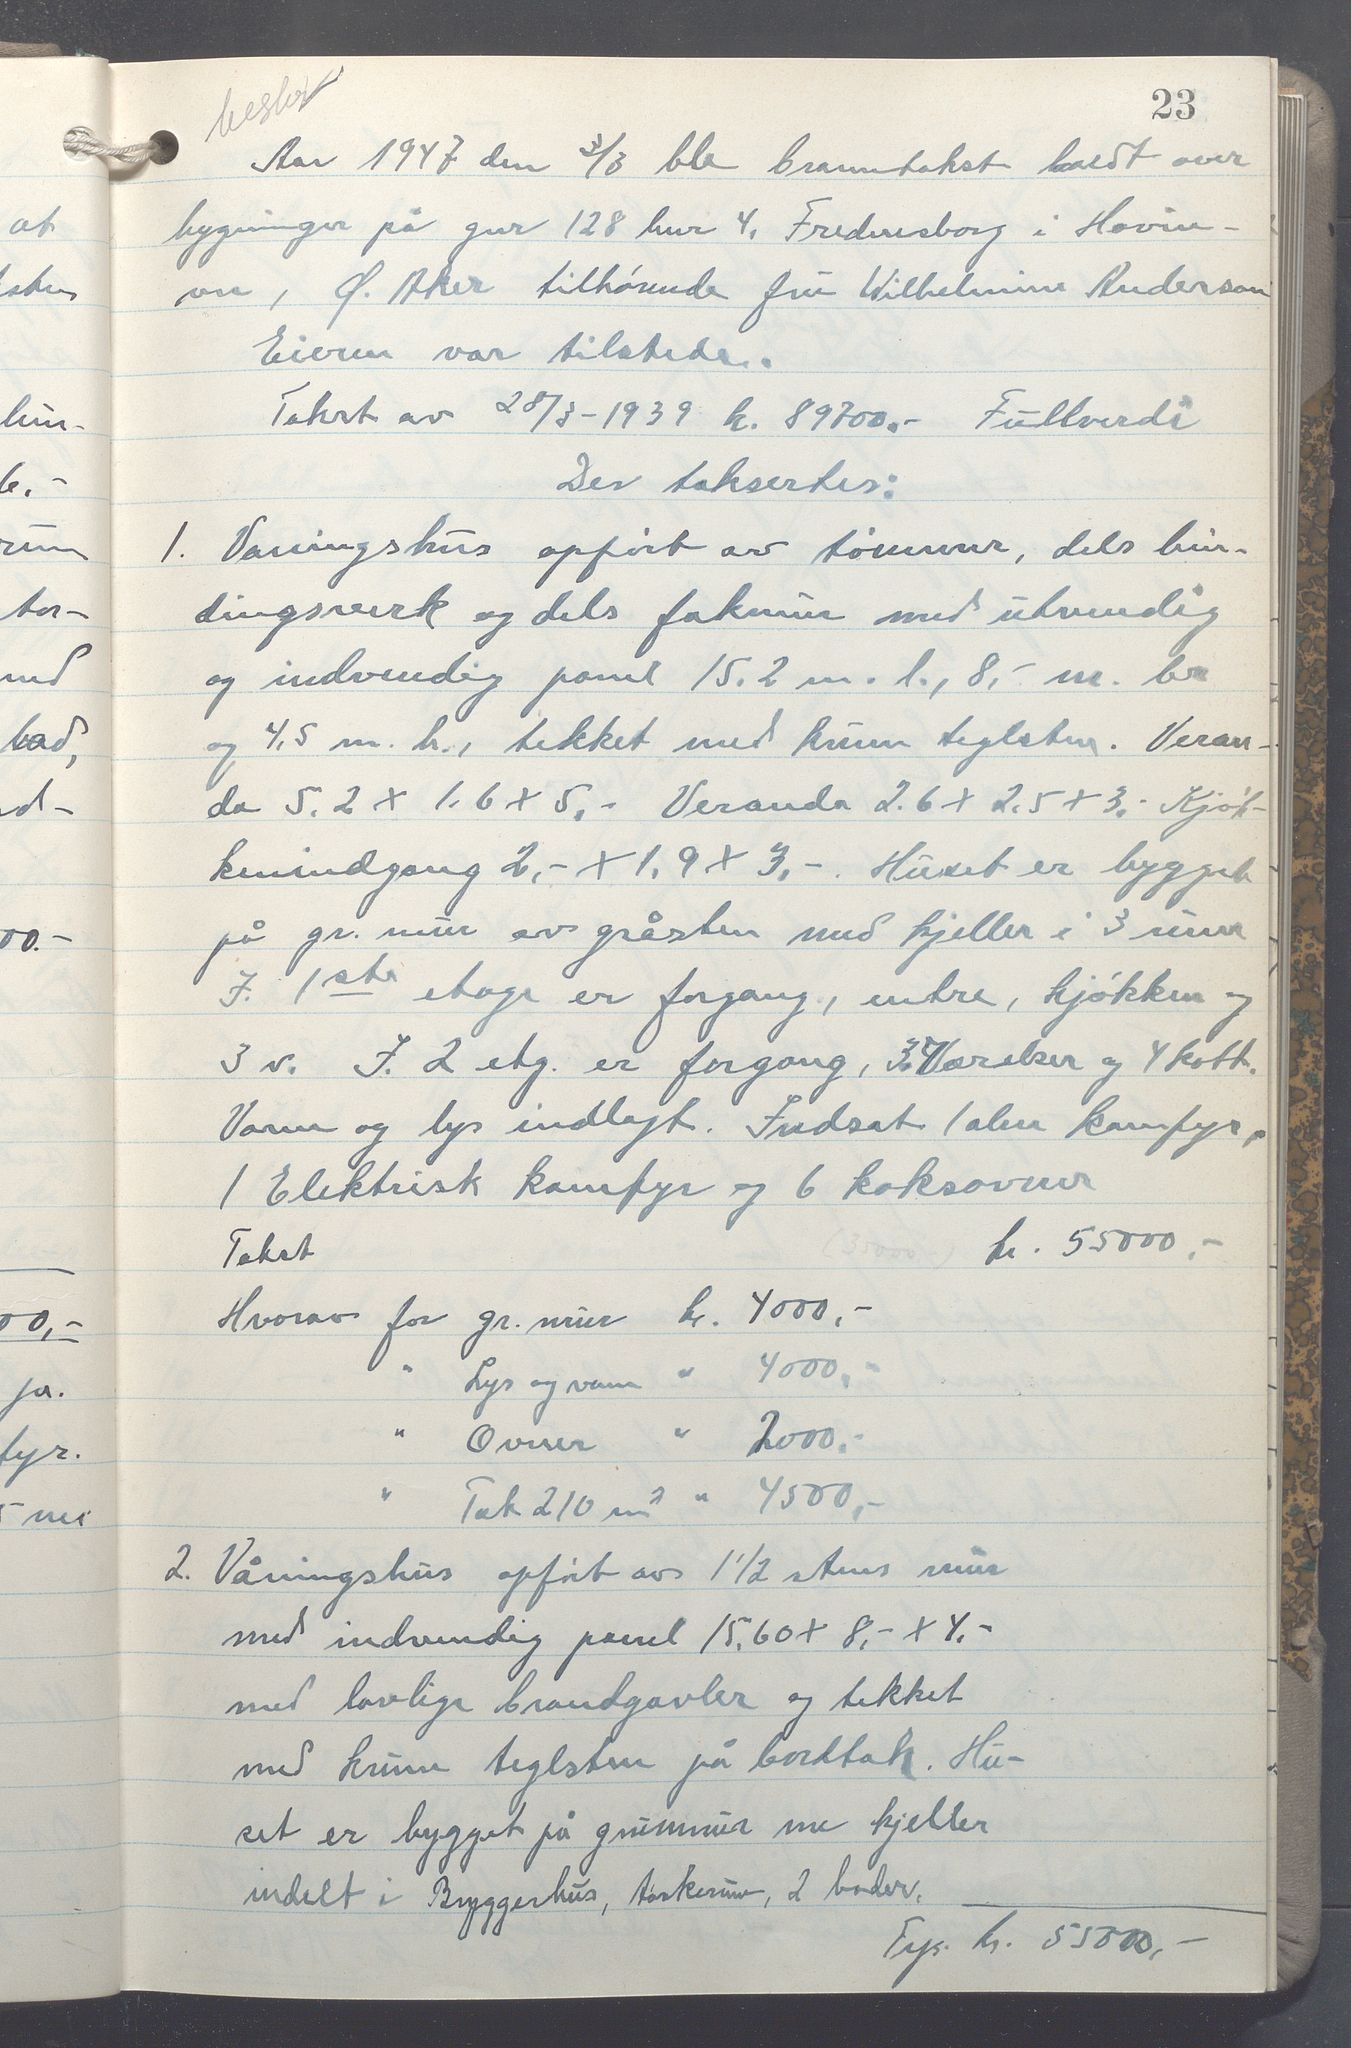 23
Aar 1947 den 3/3 ble branntakst holdt over
bygninger på gnr 128 bnr 4, Fredensborg i Hovin-
vn, Ø. Aker tilhørende fru Wilhelmine Anderson
Eieren var tilstede.
Takst av 28/3-1939 kr. 89700.- Fullverdi
Der taksertes:
1. Vaningshus opført av tømmer, dels bin-
dingsverk og dels fakmur med utvendig
og indvendig panel 15.2 m. l., 8,- m. br
og 4,5 m. h., tekket med krum teglsten. Veran-
da 5.2 x 1.6 x 5,- Veranda 2.6 x 2,5 x 3,- Kjøk-
kenindgang 2,- x 1,9 x 3,-. Huset er bygget
på gr. mur av gråsten med kjeller i 3 rum
I. 1ste etage er forgang, entre, kjøkken og
3 v. I. 2 etg. er forgang, Værelser og 4 kott.
Vann og lys indlagt. Indsat 1 alm komfyr,
1 Elektrisk komfyr og 6 koksovner
Takst kr. 55000.-
Hvorav for gr. mur kr. 4000,-
" Lys og vann " 4000,-
" Ovner " 2000.-
" Tak 210 m² " 4500,-
2. Våningshus opført av 1 1/2 stens mur
med indvendig panel 15,60 x 8,- x 4,-
med lovlige brandgavler og tekket
med krum teglsten på bordtak. Hu-
set er bygget på grunmur me kjeller
indelt i Bryggerhus, tørkerum, 2 boder.
kr. 55000,-
at
hun-
rum
med
bad,
00.-
00,-
fyr.